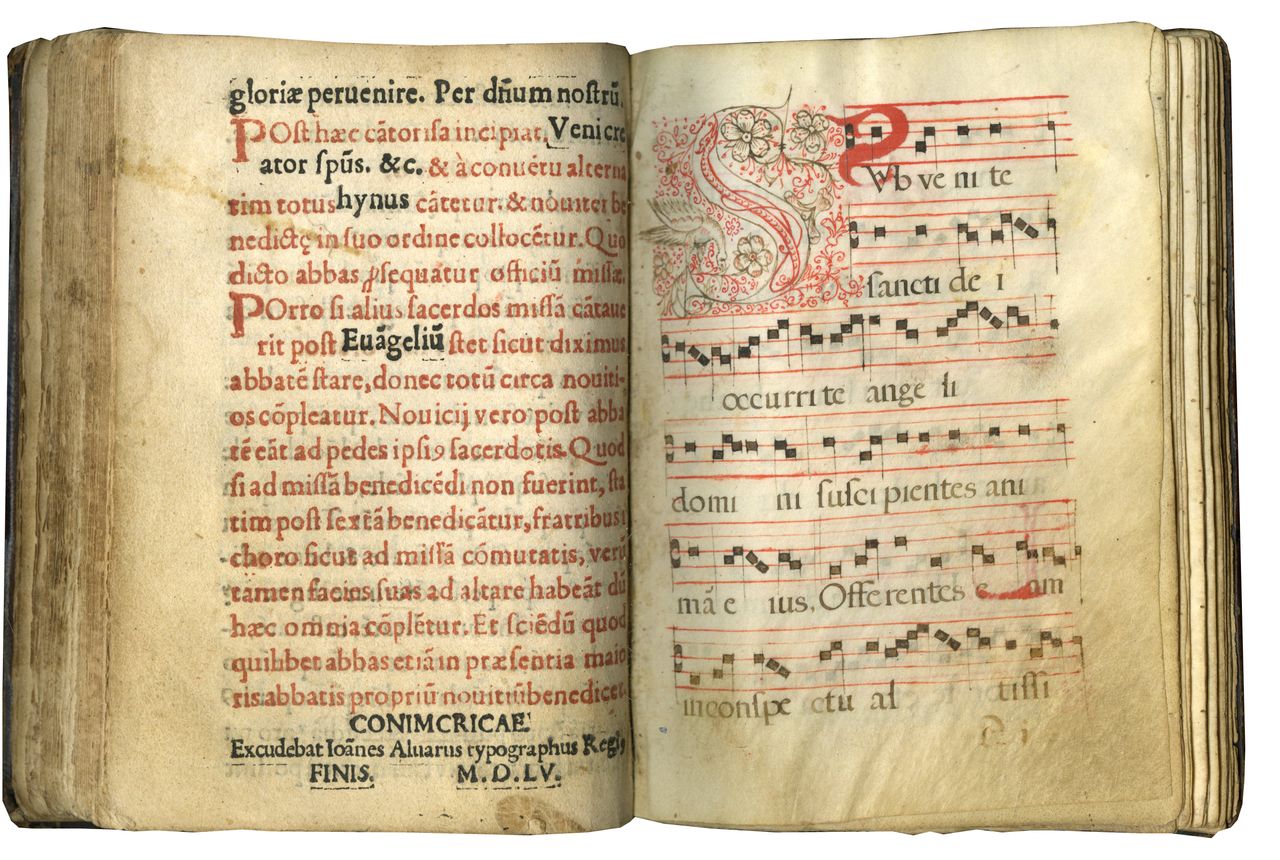 gloriæ peruenire. Per dñum nostrũ.
POst hæc cãtor ista incipiat, Veni cre
ator spũs. &c. & à conuẽtu alterna
tim totus hynus cãtetur. & nouitei be
nedictę in suo ordine collocẽtur. Quo
dicto abbas ꝓsequatur officiũ missæ.
POrro si alius sacerdos missã cãtaue
rit post Euãgeliũ stet sicut diximus
abbatẽ stare, donec totũ circa nouiti-
os cõpleatur. Nouicij vero post abba
tẽ eãt ad pedes ipsiꝰ sacerdotis. Quod
si ad missã benedicẽdi non fuerint, sta
tim post sextã benedicãtur, fratribus ĩ
choro sicut ad missã cõmutatis, verũ
tamen facies suas ad altare habeãt dũ
hæc omnia cõplẽtur. Et sciẽdũ quod
quilibet abbas etiã in præsentia maio
ris abbatis propriũ nouitiũ benedicet.
CONIMCRICAE
Excudebat Ioãnes Aluarus typographus Regiꝰ
FINIS. M.D.LV.
SVb ve ni te
sancti de i
occurri te ange li
domi ni susci pientes ani
mã e ius, Offe rentes e am
in conspe ctu al tissi